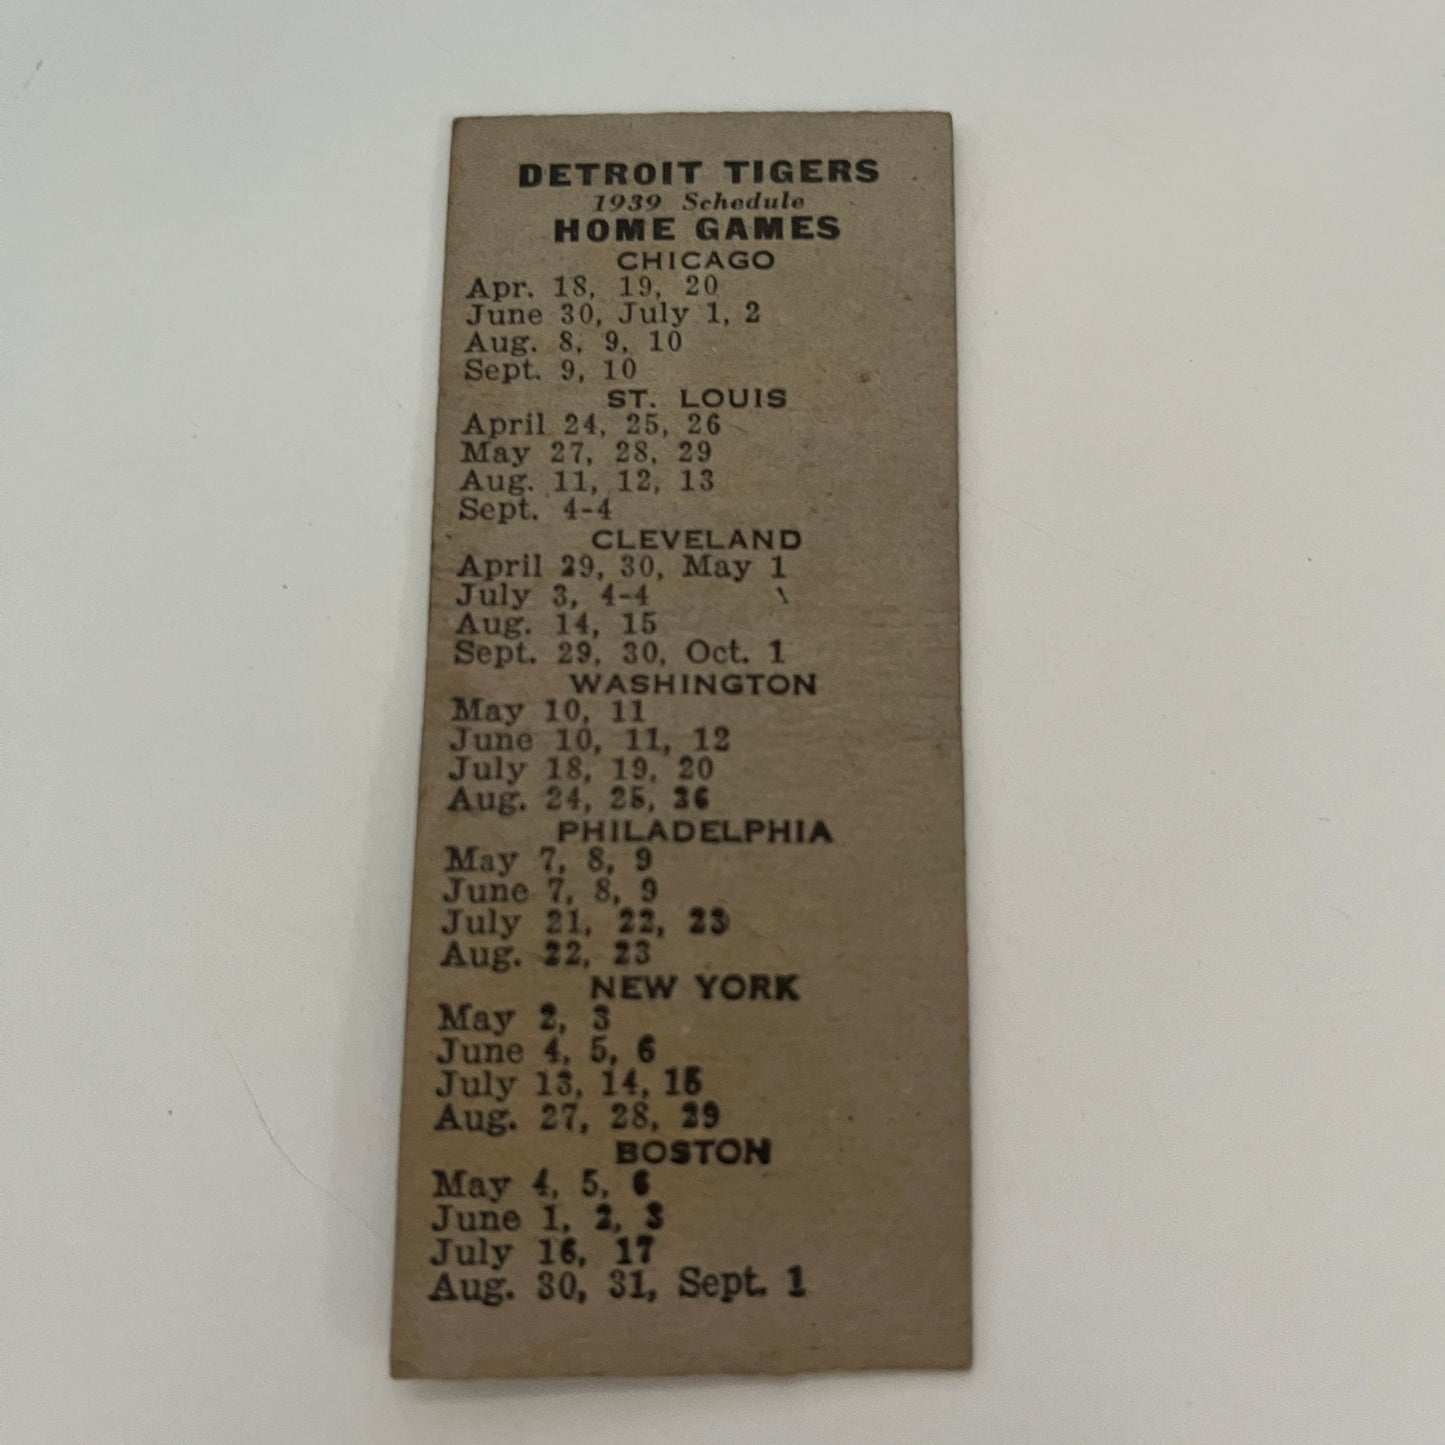 DETROIT TIGERS
1939 Schedule
HOME GAMES
CHICAGO
Apr. 18, 19, 20
June 30, July 1, 2
Aug. 8, 9, 10
Sept. 9, 10
ST. LOUIS
April 24, 25, 26
May 27, 28, 29
Aug. 11, 12, 13
Sept. 4-4
CLEVELAND
April 29, 30, May 1
July 3, 4-4
Aug. 14, 15
Sept. 29, 30, Oct. 1
WASHINGTON
May 10, 11
June 10, 11, 12
July 18, 19, 20
Aug. 24, 25, 26
PHILADELPHIA
May 7, 8, 9
June 7, 8, 9
July 21, 22, 23
Aug. 22, 23
NEW YORK
May 2, 3
June 4, 5, 6
July 13, 14, 15
Aug. 27, 28, 29
BOSTON
May 4, 5, 6
June 1, 2, 3
July 16, 17
Aug. 30, 31, Sept. 1